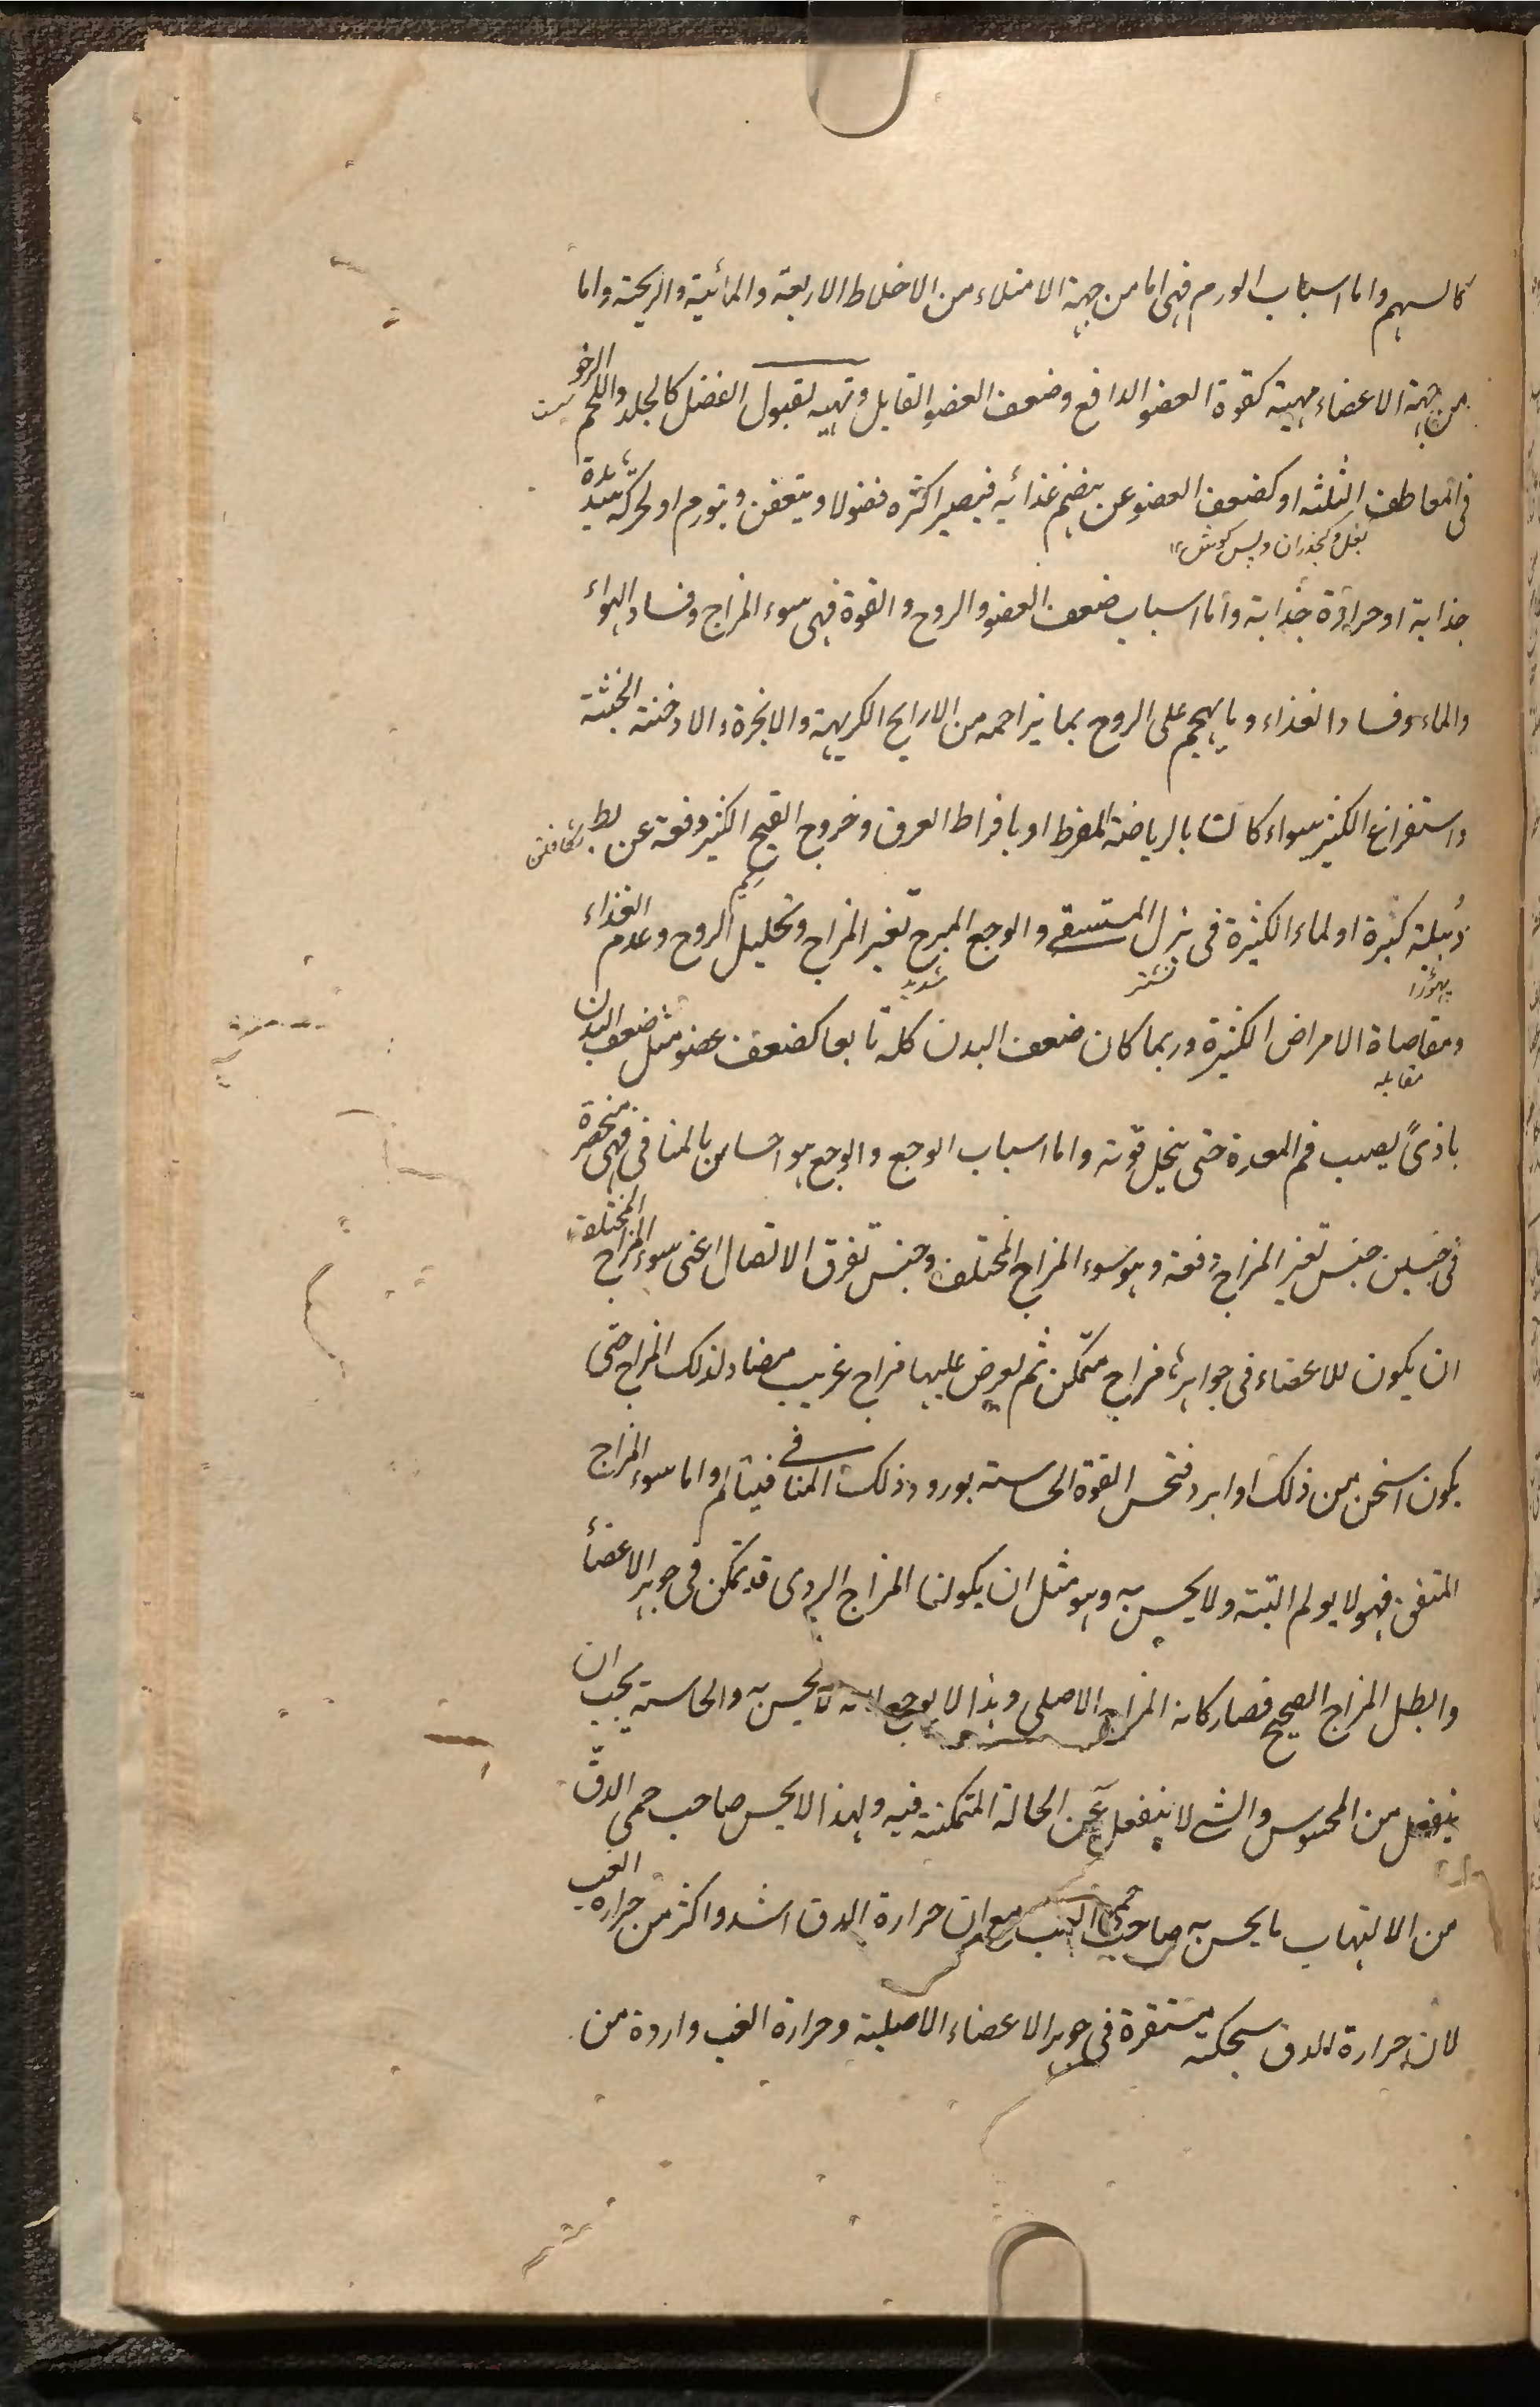 كالسهم واما اسباب الورم فهى اما من جهة الامتلاء من الاخلاط الاربعة والمائية والريحية واما
من جهة الاعضاء مهيية كقوة العضو الدافع وضعف العضو القابل وتهيه لقبول الفضل كالجلد واللحم الرخو
فى المعاطف الثلثه او كضعف العضو عن هضم غذائه فيصير اكثره فضولا ويتعفن ويتورم او لحركه شديدة
بغل و كنجران و پس گوش
جذابة او حرارة جذابة واما اسباب ضعف العضو والروح والقوة فهى سوء المزاج وفساد الهواء
والماء وفساد الغذاء وما يهجم على الروح بما يزاحمه من الارايح الكريهة والابخرة والادخنة الخبثة
واستفراغ الكثير سواء كانت بالرياضة المفرط او بافراط العرق وخروج القيح الكثير دفعة عن بط
ريم
دُبيلة كبيرة او لماء الكثيرة فى بزل المستسقى والوجع المبرح تغير المزاج وتحليل الروح وعدم الغذاء
پهوڑا نشتر شديد
ومقاصاة الامراض الكثيرة وربما كان ضعف البدن كله تابعا كضعف عضو مثل ضعف البدن
مقابله
باذىً يصيب فم المعدة حتى ينحل قوته واما اسباب الوجع والوجع هو احساس بالمنافى فهى منحصرة
فى جنسين جنس تغير المزاج دفعة وهو سوء المزاج المختلف وجنس تفرق الاتصال اعنى سوء المزاج المختلف
ان يكون للاعضاء فى جواهرها مزاج متمكن ثم يعرض عليها مزاج غريب مضاد لذلك المزاج حتى
يكون اسخن من ذلك او ابرد فتحس القوة الحاسة بورود ذلك المنافى فيتالم واما سوء المزاج
المتفق فهو لا يولم البتة ولا يحس به وهو مثل ان يكون المزاج الردى قد تمكن فى جوهر الاعضاء
وابطل المزاج الصحيح فصار كانه المزاج الاصلى وهذا لا يوجع لانه لا يحس به والحاسة يجب ان
ينفعل من المحسوس والشى لا ينفعل عن الحالة المتمكنة فيه ولهذا لا يحس صاحب حمى الدقّ
من الالتهاب ما يحس به صاحب حمى الغب مع ان حرارة الدق اشد واكثر من حرارة الغب
لان حرارة الدق مستحكمة مستقرة فى جوهر الاعضاء الاصلية وحرارة الغب واردة من